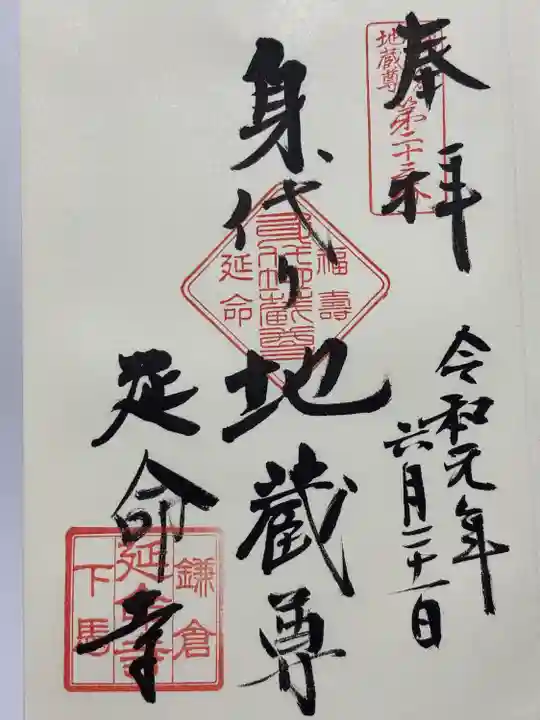 奉拝
地蔵尊
第二十三
令和元年
六月二十一日
身代り地蔵尊
福壽
延命
延命寺
鎌倉
延命寺
下馬